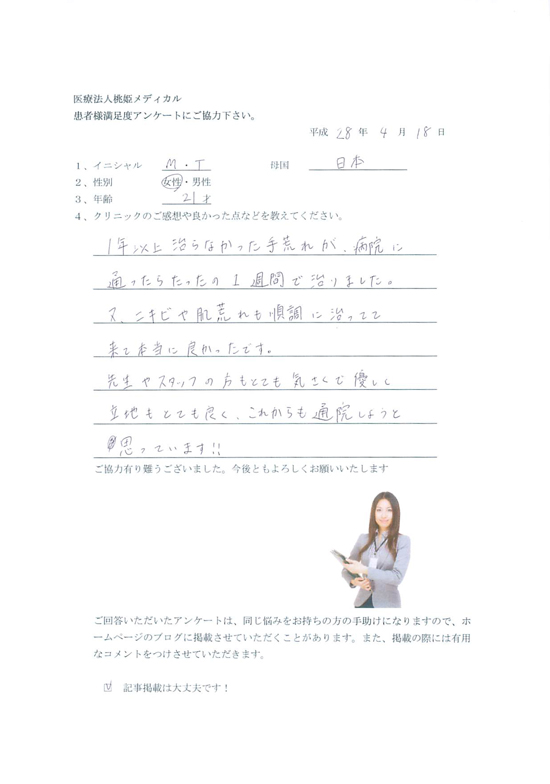 医療法人桃姫メディカル
患者様満足度アンケートにご協力下さい。
平成 28 年 4 月 18 日
1、イニシャル M・T 母国 日本
2、性別 女性・男性
3、年齢 21才
4、クリニックのご感想や良かった点などを教えてください。
1年以上治らなかった手荒れが、病院に
通ったらたったの1週間で治りました。
又、ニキビや肌荒れも順調に治ってて
来て本当に良かったです。
先生やスタッフの方もとても気さくで優しく
立地もとても良く、これからも通院しようと
思っています!!
ご協力有り難うございました。今後ともよろしくお願いいたします
ご回答いただいたアンケートは、同じ悩みをお持ちの方の手助けになりますので、ホ
ームページのブログに掲載させていただくことがあります。また、掲載の際には有用
なコメントをつけさせていただきます。
☑ 記事掲載は大丈夫です！